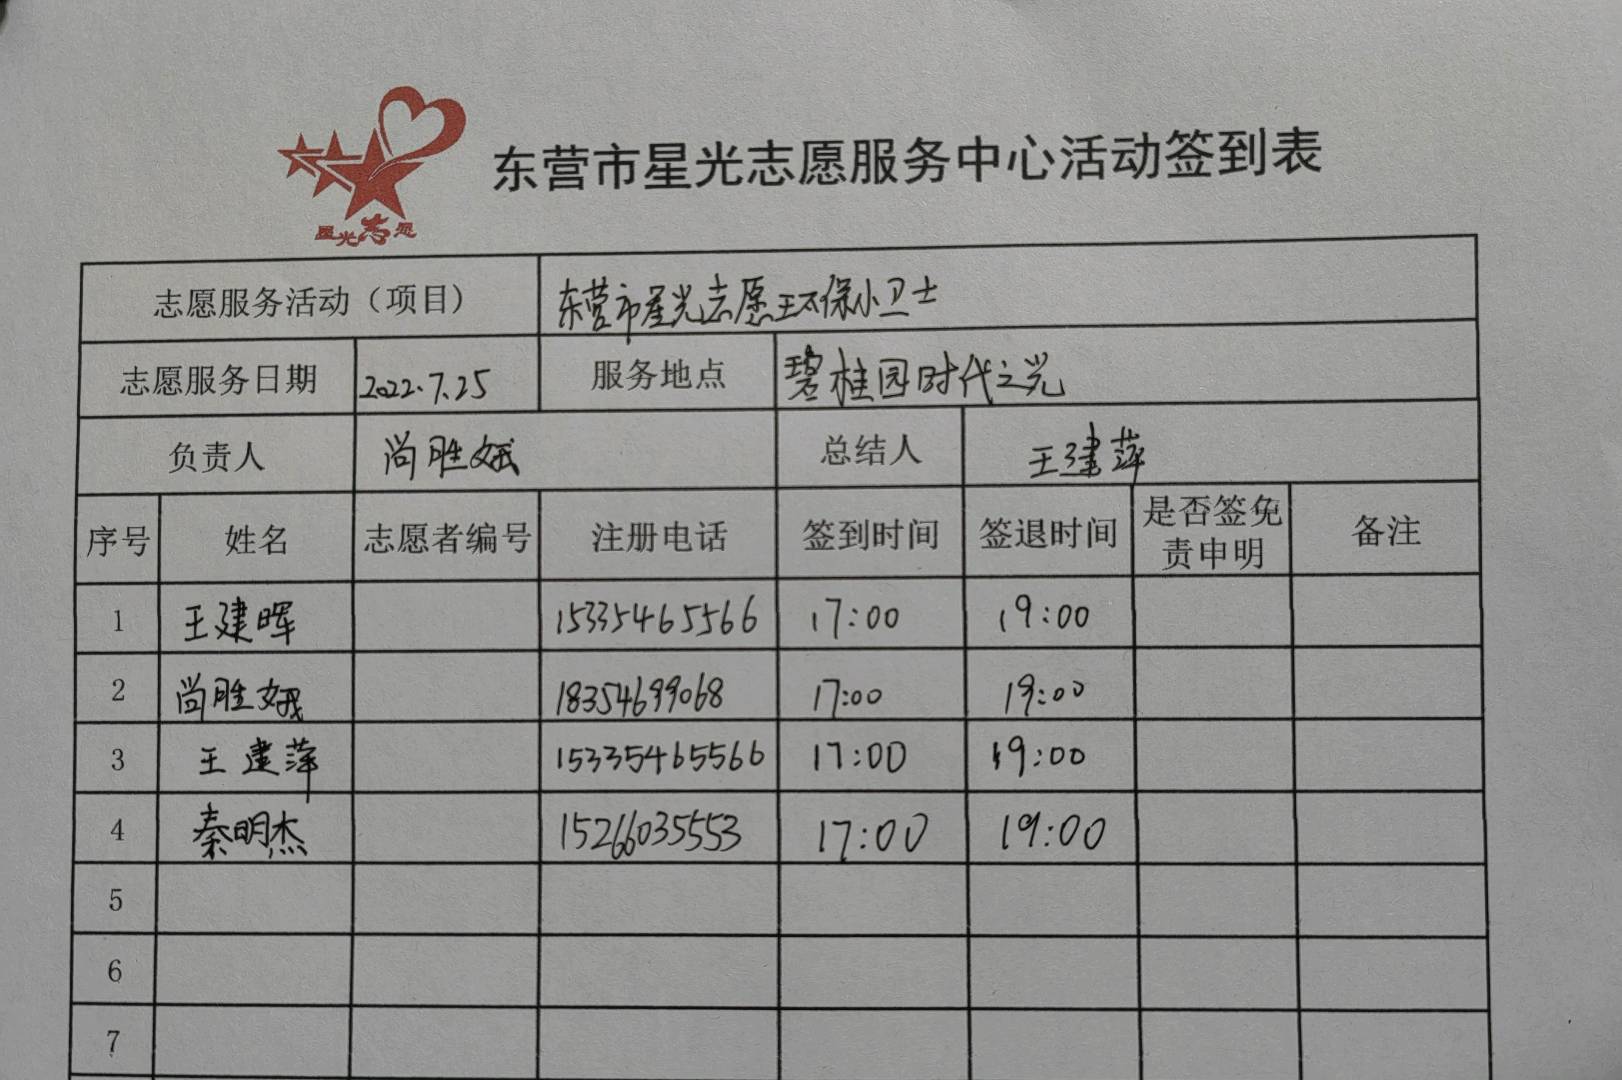 星光志愿
东营市星光志愿服务中心活动签到表
志愿服务活动（项目） 东营市星光志愿环保小卫士
志愿服务日期 2022.7.25 服务地点 碧桂园时代之光
负责人 尚胜娥 总结人 王建萍
序号 姓名 志愿者编号 注册电话 签到时间 签退时间 是否签免责申明 备注
1 王建晖 15335465566 17:00 19:00
2 尚胜娥 18354699068 17:00 19:00
3 王建萍 15335465566 17:00 19:00
4 秦明杰 15266035553 17:00 19:00
5
6
7